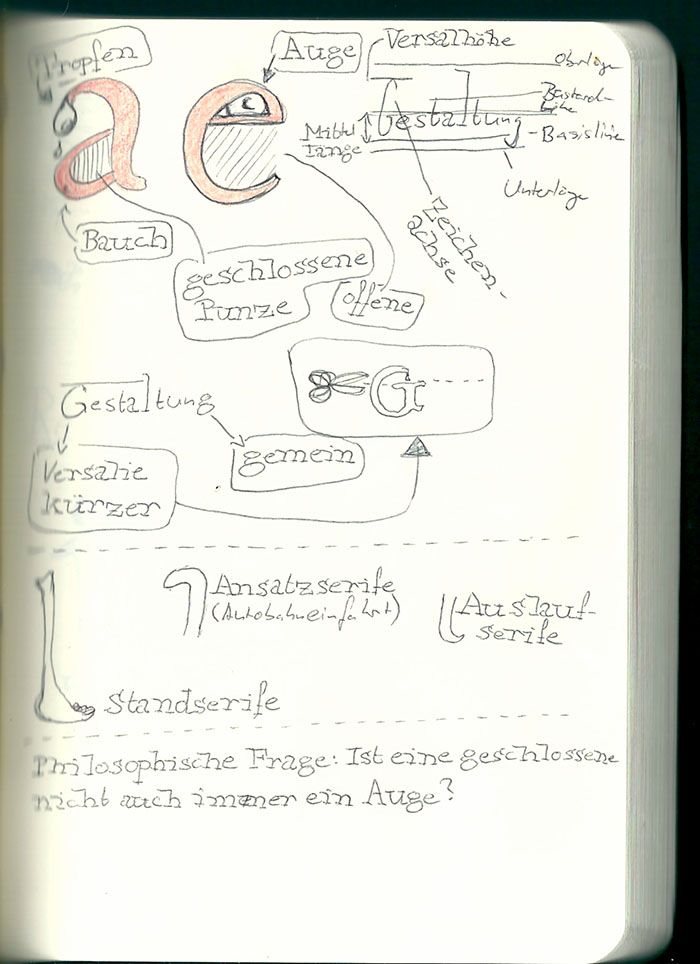 Tropfen
Auge
Versalhöhe
Oberlänge
a
e
Gestaltung
Mittel
länge
Basislinie
Unterlänge
Zeichen-
achse
Bauch
geschlossene
Punze
offene
G
Gestaltung
gemein
Versalie
kürzer
Ansatzserife
(Autobahneinfahrt)
Auslauf-
serife
Standserife
Philosophische Frage: Ist eine geschlossene
nicht auch immer ein Auge?